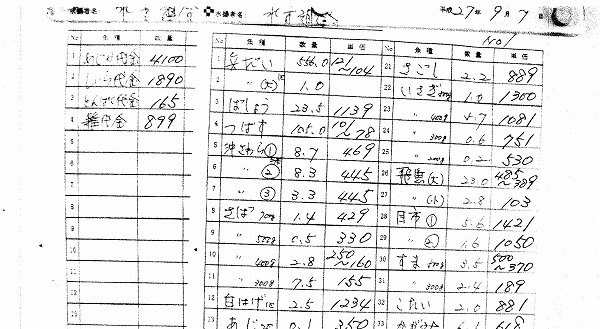 水揚者名
水揚者名
平成27年9月7日
No1
魚種 数量
1 あじ代金 4100
2 代金 1890
3 とんぼ代金 165
4 雑代金 899
5
6
7
8
9
10
11
12
魚種 数量 単価
1 真だい 556.0 121~104
2 〃(大) 1.0
3 ばしょう 23.5 1139
4 つばす 105.0 101~78
5 沖さわら① 8.7 469
6 〃② 8.3 445
7 〃③ 3.3 445
8 さば700g 1.4 429
9 〃500g 0.5 330
10 〃400g 2.8 250~160
11 〃300g 7.5 155
12 白はげ 2.5 1234
13 あじ 0.1 350
魚種 数量 単価
21 さごし 2.2 889
22 いさぎ 1.0 1300
23 〃400g 4.7 1081
24 〃300g 0.6 751
25 〃200g 0.2 530
26 飛魚(大) 23.0 485~389
27 〃(小) 2.8 103
28 目市① 5.6 1421
29 〃② 1.6 1050
30 すま 3.5 500~370
31 〃 2.4 189
32 こだい 2.0 881
33 618